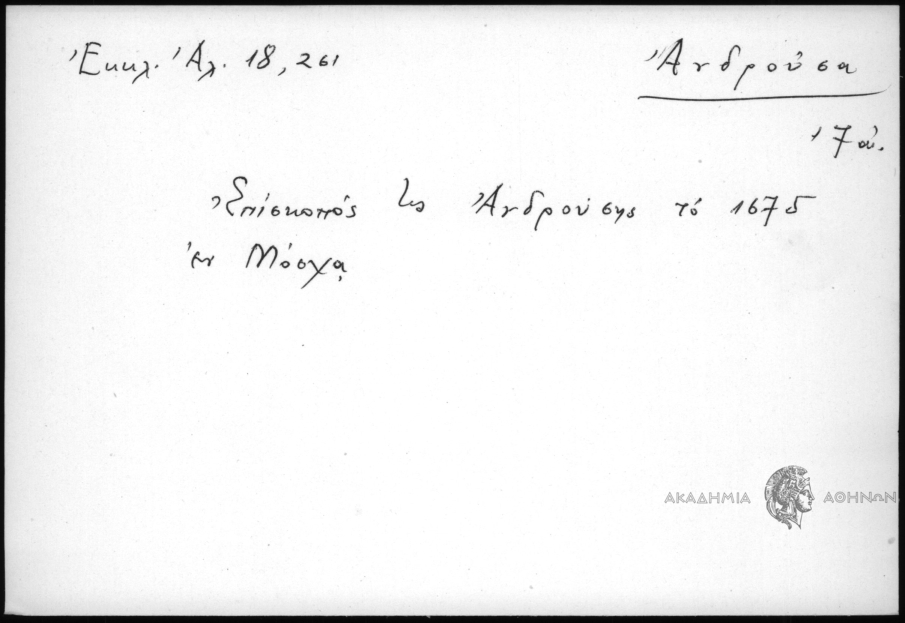 Ἐκκλ. Ἀλ. 18, 251
Ἀνδροῦσα
17 αἰ.
Ἐπίσκοπός τις Ἀνδρούσης τό 1675
ἐν Μόσχᾳ
ΑΚΑΔΗΜΙΑ ΑΘΗΝΩΝ